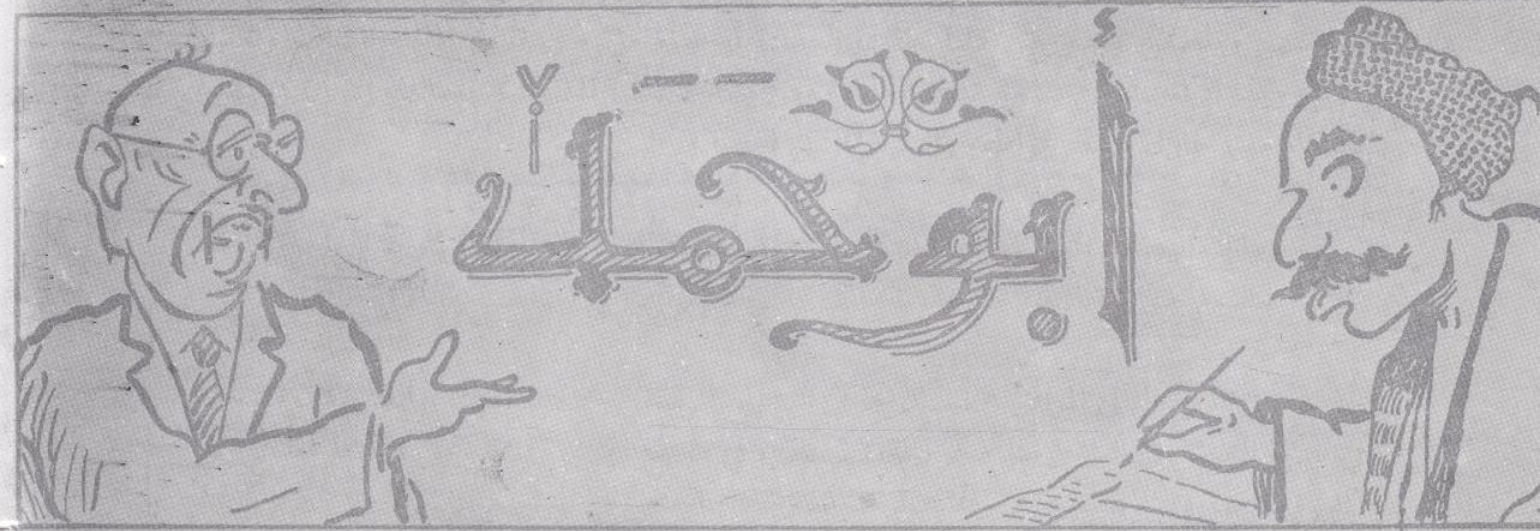 أبو حمد